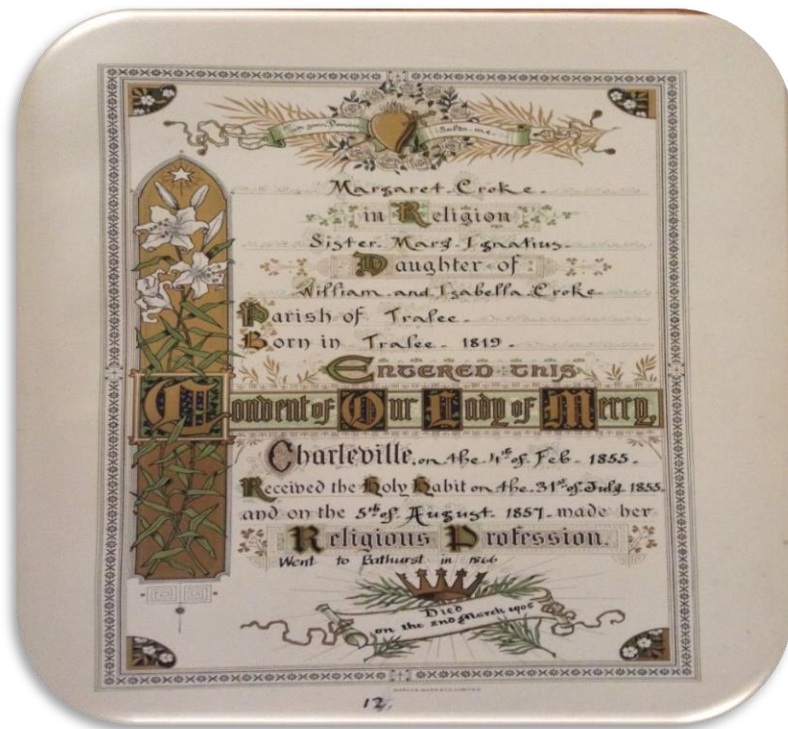 Salva me
Margaret Croke.
in Religion
Sister Mary Ignatius.
Daughter of
William and Isabella Croke
Parish of Tralee.
Born in Tralee. 1819.
ENTERED THIS
Convent of Our Lady of Mercy,
Charleville, on the 4th of Feb. 1855.
Received the Holy Habit on the 31st of July 1855.
and on the 5th of August 1857. made her
Religious Profession.
Went to Bathurst in 1866
Died
on the 2nd March 1905
12.